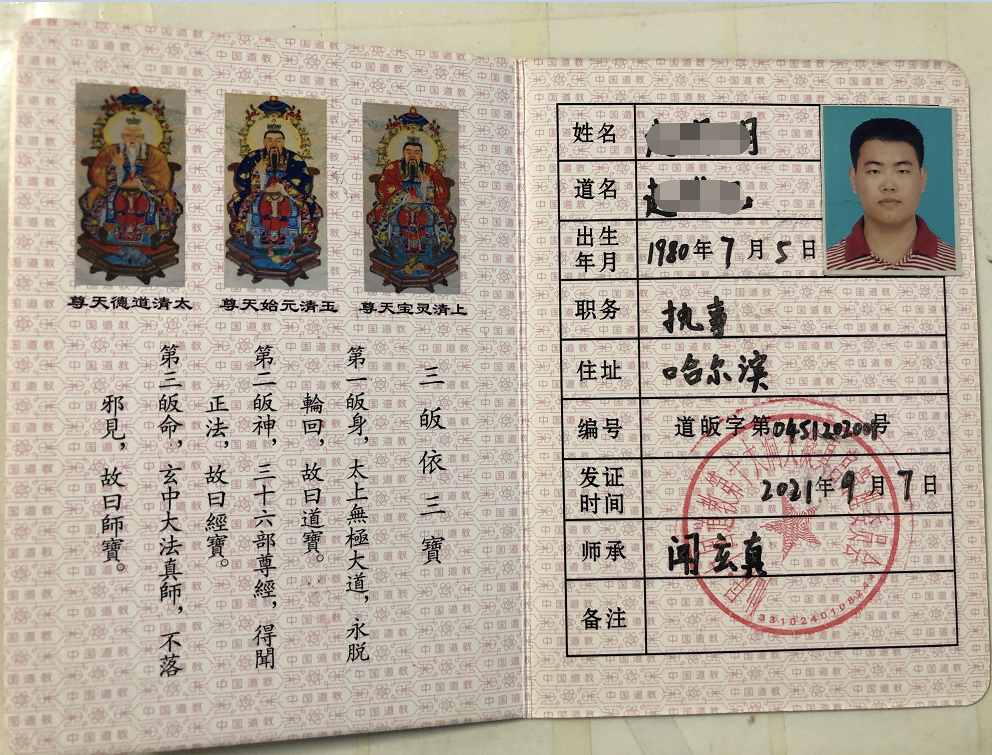 尊天德道清太
尊天始元清玉
尊天宝灵清上
三皈依三寶
第一皈身，太上無極大道，永脱
輪回，故曰道寶。
第二皈神，三十六部尊經，得聞
正法，故曰經寶。
第三皈命，玄中大法真師，不落
邪見，故曰師寶。
姓名
道名
出生年月 1980年7月5日
职务 执事
住址 哈尔滨
编号 道皈字第0451202009号
发证时间 2021年9月7日
师承 闻玄真
备注
中国道教